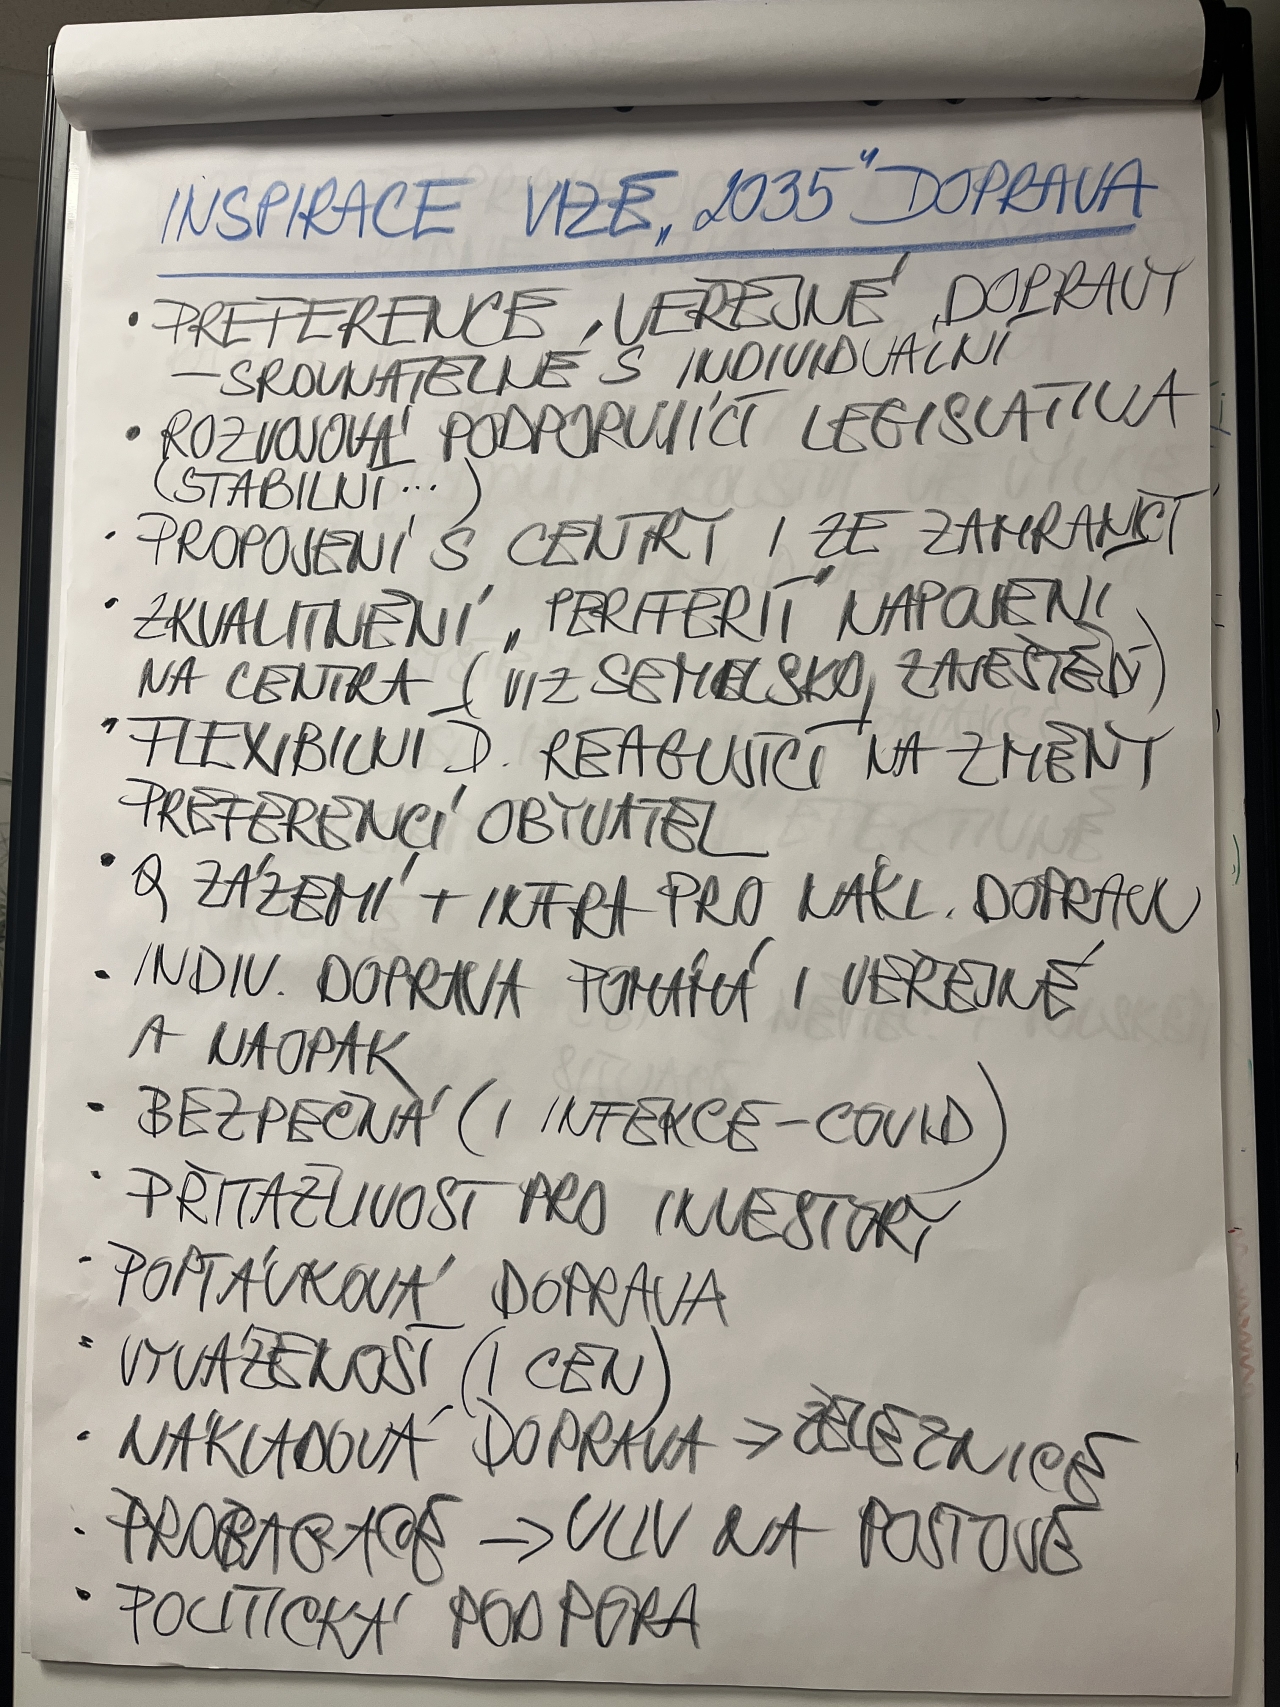 INSPIRACE VIZE „2035" DOPRAVA
• PREFERENCE VEŘEJNÉ DOPRAVY
– SROVNATELNÉ S INDIVIDUÁLNÍ
• ROZVOJOVÁ PODPORUJÍCÍ LEGISLATIVA
(STABILNÍ...)
• PROPOJENÍ S CENTRY I ZE ZAHRANIČÍ
• ZKVALITNĚNÍ „PERIFERIÍ" NAPOJENÍ
NA CENTRA (VIZ SEMILSKO,
• FLEXIBILNÍ D. REAGUJÍCÍ NA ZMĚNY
PREFERENCÍ OBYVATEL
• Q ZÁZEMÍ + INFRA PRO NÁKL. DOPRAVU
• INDIV. DOPRAVA POMÁHÁ I VEŘEJNÉ
A NAOPAK
• BEZPEČNÁ (I INFEKCE – COVID)
• PŘITAŽLIVOST PRO INVESTORY
• POPTÁVKOVÁ DOPRAVA
• VYVÁŽENOST (I CEN)
• NÁKLADOVÁ DOPRAVA → ŽELEZNICE
• PROPAGACE → VLIV NA POSTOJE
• POLITICKÁ PODPORA